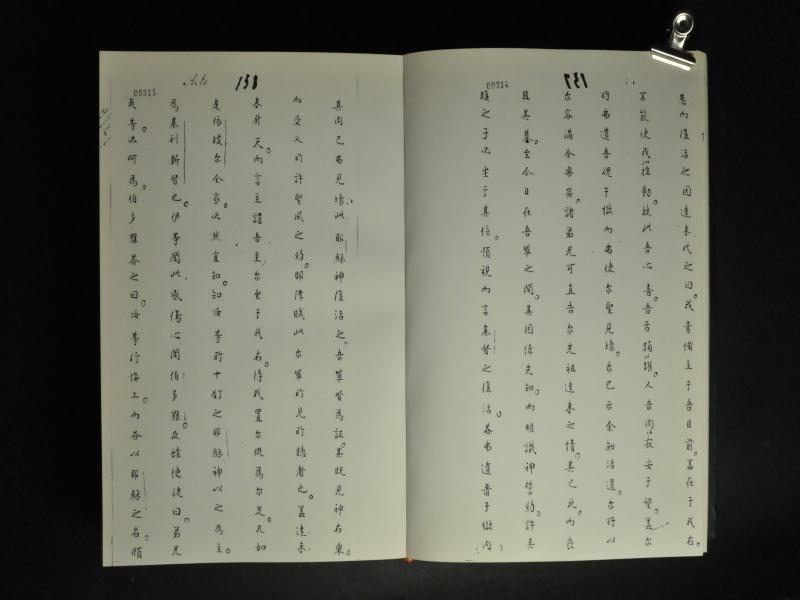 00314
137
意向復活之因達未代之曰我素憶主于吾目前蓋在于我右
不能使我搖動故此吾心喜吾舌踊躍人吾肉寂安于望蓋尔
將弗遺吾魂于獄向弗使尔聖見壞尔已示余知活道尔将以
尔容滿余樂矣諸弟兄可直告尔先祖達未之情其已死而喪
且其墓至今日在吾輩之間其因係先知而明識神誓約許其
腹之子以坐于其位預視而言基督之復活者弗遺番于獄内
00315
138
其肉已弗見壞此耶穌神復活之吾輩皆為証其既見神右舉
而受父所許聖風之約即澤賊此尔輩所見所聽者也蓋達未
未升天而言主謂吾主尔坐于我右待我置尔仇為尔足凡如
是依𤦂尔全家必照直知知汝等所十釘之耶穌神以之為主
為基利斯督也伊等聞此感傷心聞伯多羅及諸使徒曰弟兄
我等必何為伯多羅答之曰汝等行悔工而各以耶穌之名領